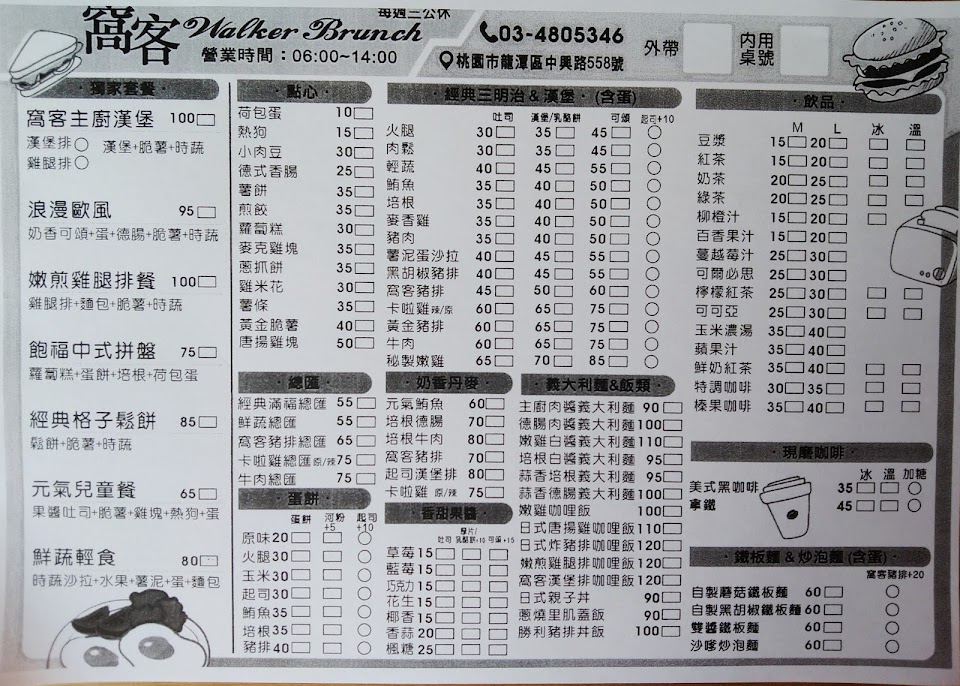 每週三公休
窩客 Walker Brunch
營業時間：06:00~14:00
03-4805346
桃園市龍潭區中興路558號
外帶
內用桌號
獨家套餐
窩客主廚漢堡 100
漢堡排 漢堡+脆薯+時蔬
雞腿排
浪漫歐風 95
奶香可頌+蛋+德腸+脆薯+時蔬
嫩煎雞腿排餐 100
雞腿排+麵包+脆薯+時蔬
飽福中式拼盤 75
蘿蔔糕+蛋餅+培根+荷包蛋
經典格子鬆餅 85
鬆餅+脆薯+時蔬
元氣兒童餐 65
果醬吐司+脆薯+雞塊+熱狗+蛋
鮮蔬輕食 80
時蔬沙拉+水果+薯泥+蛋+麵包
點心
荷包蛋 10
熱狗 15
小肉豆 30
德式香腸 25
薯餅 35
煎餃 35
蘿蔔糕 30
麥克雞塊 35
蔥抓餅 35
雞米花 30
薯條 35
黃金脆薯 40
唐揚雞塊 50
總匯
經典滿福總匯 55
鮮蔬總匯 55
窩客豬排總匯 65
卡啦雞總匯 原/辣 75
牛肉總匯 75
蛋餅
蛋餅 河粉+5 起司+10
原味 20
火腿 30
玉米 30
起司 30
鮪魚 35
培根 35
豬排 40
經典三明治&漢堡 (含蛋)
吐司 漢堡/乳酪餅 可頌 起司+10
火腿 30 35 45
肉鬆 30 35 45
輕蔬 40 45 55
鮪魚 35 40 50
培根 35 40 50
麥香雞 35 40 50
豬肉 35 40 50
薯泥蛋沙拉 40 45 55
黑胡椒豬排 40 45 55
窩客豬排 45 50 60
卡啦雞 辣/原 60 65 75
黃金豬排 60 65 75
牛肉 60 65 75
秘製嫩雞 65 70 85
奶香丹麥
元氣鮪魚 60
培根德腸 70
培根牛肉 80
窩客豬排 70
起司漢堡排 80
卡啦雞 原/辣 75
香甜果醬
厚片/
吐司 乳酪餅+10 可頌+15
草莓 15
藍莓 15
巧克力 15
花生 15
椰香 15
香蒜 20
楓糖 25
義大利麵&飯類
主廚肉醬義大利麵 90
德腸肉醬義大利麵 100
嫩雞白醬義大利麵 110
培根白醬義大利麵 95
蒜香培根義大利麵 95
蒜香德腸義大利麵 100
嫩雞咖哩飯 100
日式唐揚雞咖哩飯 110
日式炸豬排咖哩飯 120
嫩煎雞腿咖哩飯 120
窩客漢堡排咖哩飯 120
日式親子丼 90
蔥燒里肌蓋飯 90
勝利豬排丼飯 100
飲品
M L 冰 溫
豆漿 15 20
紅茶 15 20
奶茶 20 25
綠茶 20 25
柳橙汁 15 20
百香果汁 15 20
蔓越莓汁 25 30
可爾必思 25 30
檸檬紅茶 25 30
可可亞 25 30
玉米濃湯 35 40
蘋果汁 35 40
鮮奶紅茶 35 40
特調咖啡 30 35
榛果咖啡 35 40
現磨咖啡
冰 溫 加糖
美式黑咖啡 35
拿鐵 45
鐵板麵&炒泡麵 (含蛋)
窩客豬排+20
自製蘑菇鐵板麵 60
自製黑胡椒鐵板麵 60
雙醬鐵板麵 60
沙嗲炒泡麵 60